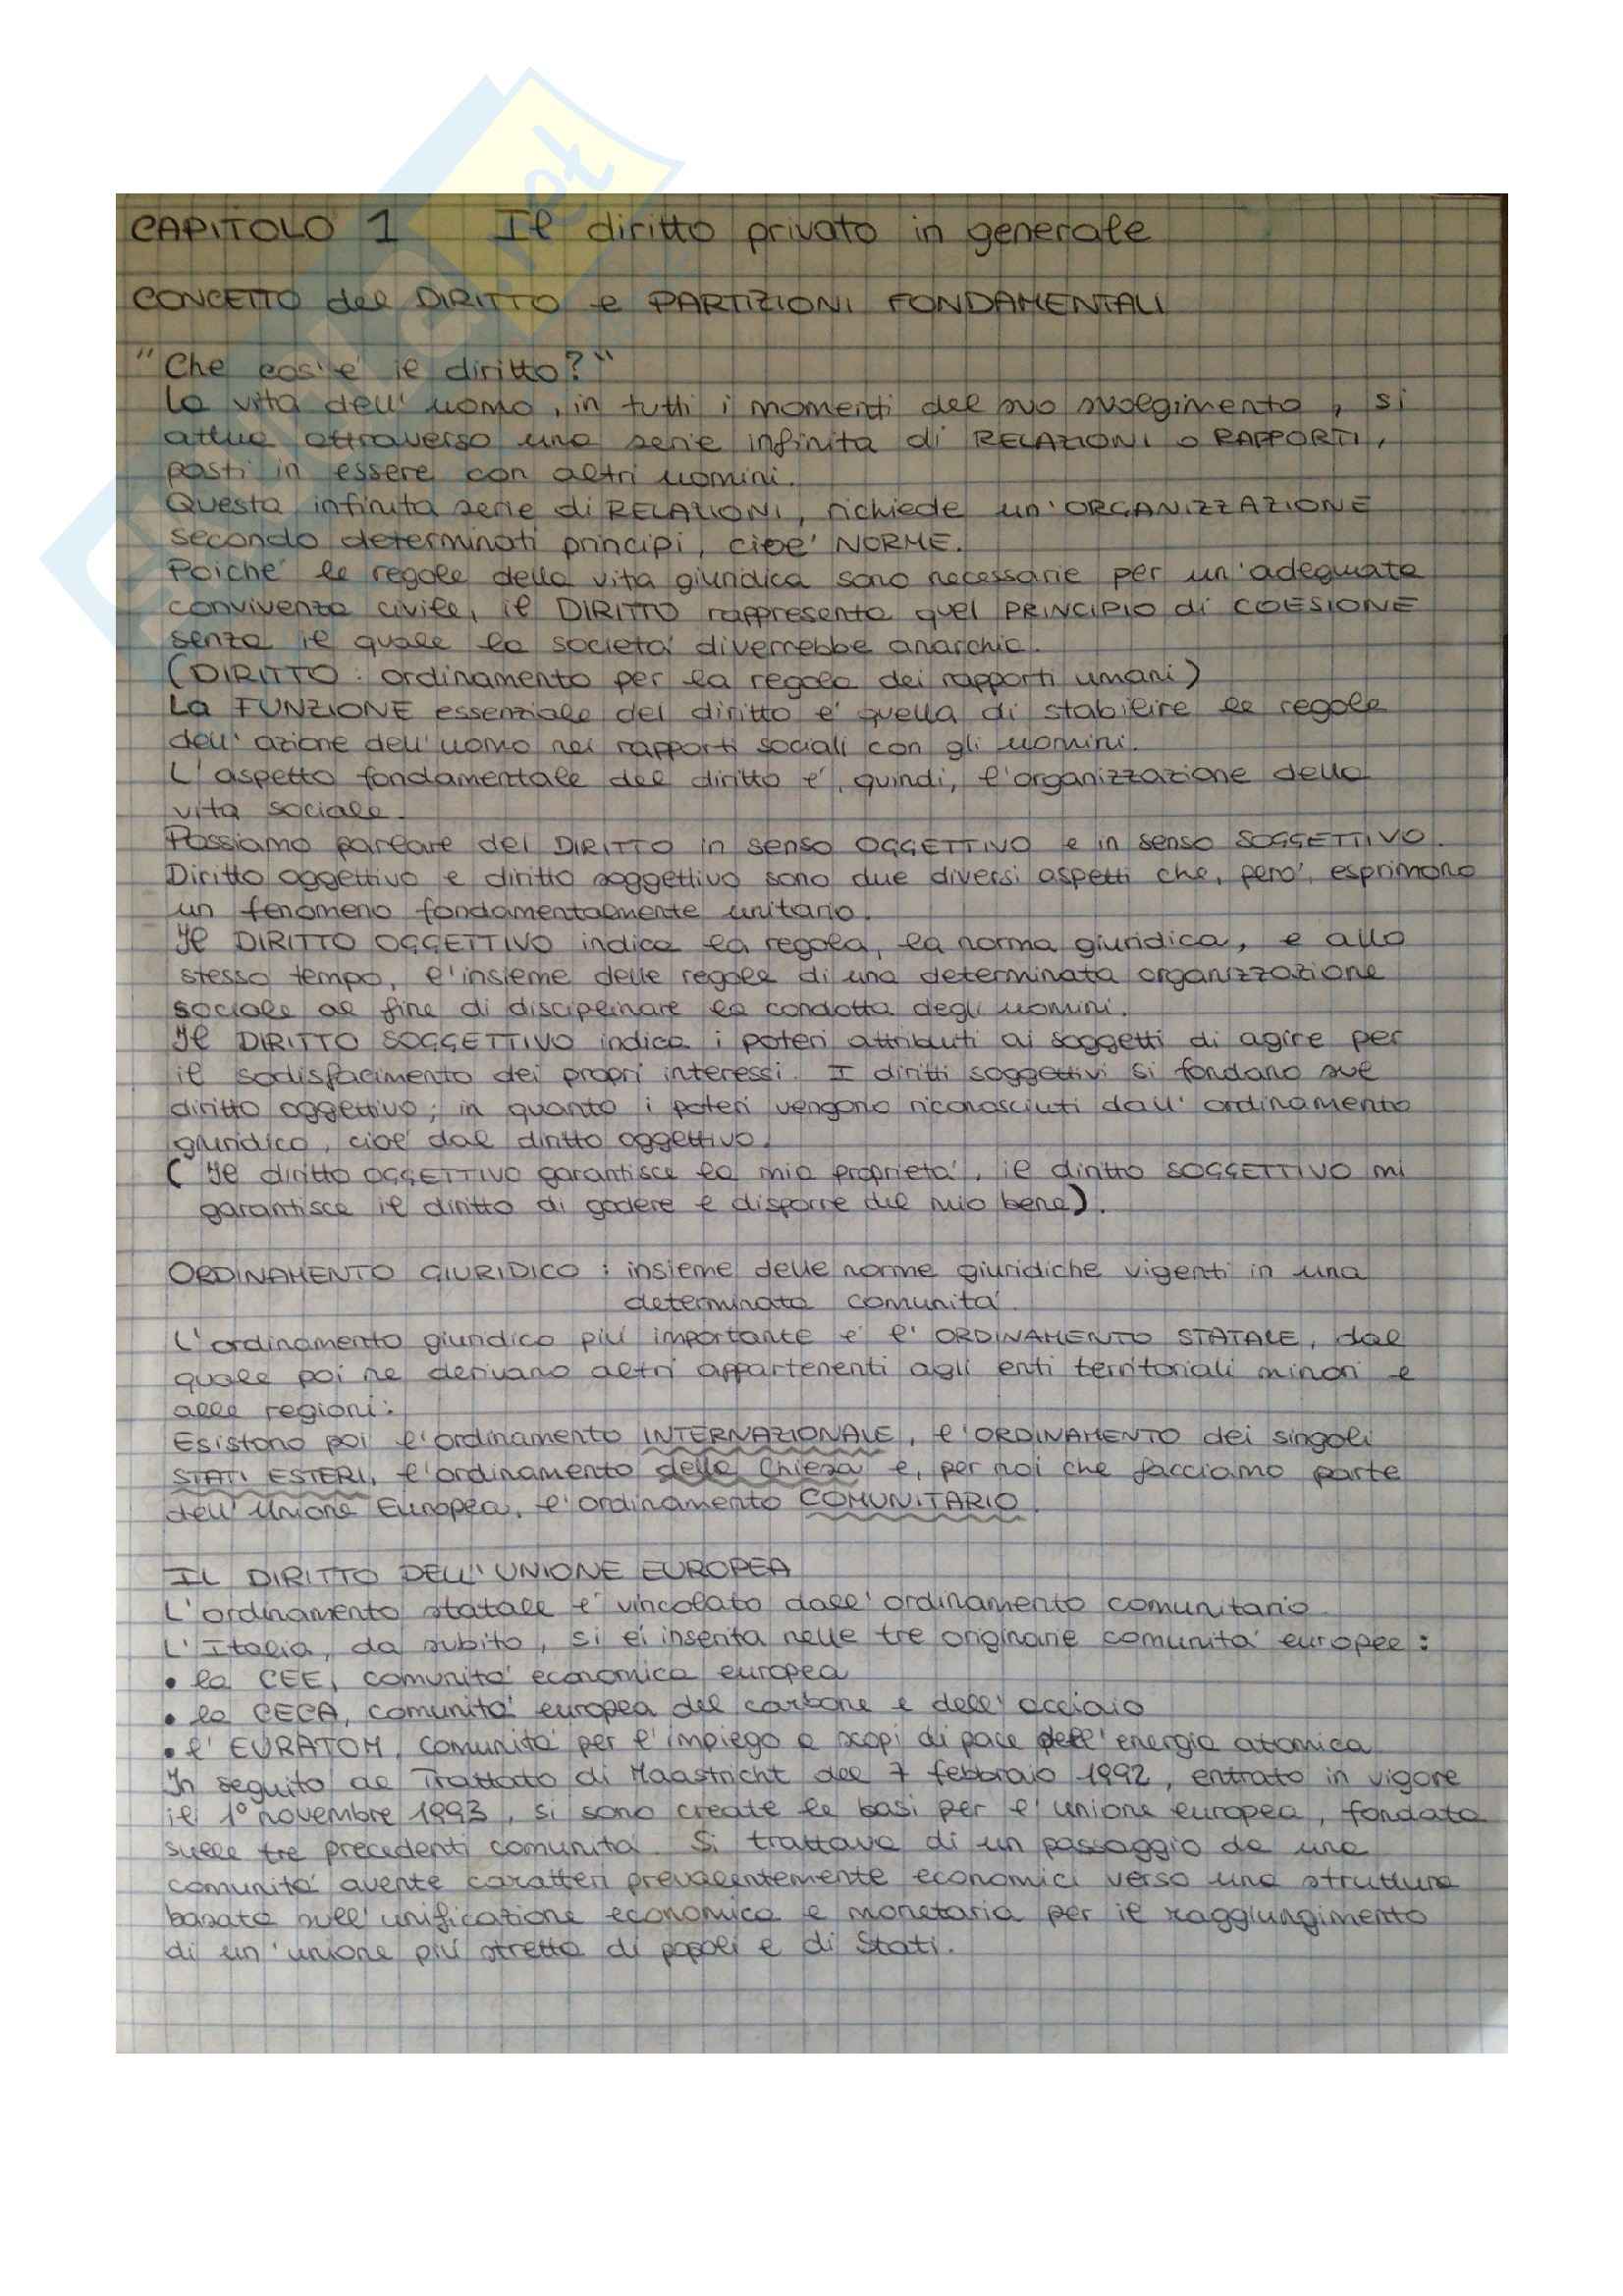 CAPITOLO 1 Il diritto privato in generale
CONCETTO del DIRITTO e PARTIZIONI FONDAMENTALI
"Che cos'e' il diritto?"
La vita dell'uomo, in tutti i momenti del suo svolgimento, si
attua attraverso una serie infinita di RELAZIONI o RAPPORTI,
posti in essere con altri uomini.
Questa infinita serie di RELAZIONI, richiede un'ORGANIZZAZIONE
secondo determinati principi, cioe' NORME.
Poiche' le regole della vita giuridica sono necessarie per un'adeguata
convivenza civile, il DIRITTO rappresenta quel PRINCIPIO di COESIONE
senza il quale la societa' diverrebbe anarchia.
(DIRITTO: ordinamento per la regola dei rapporti umani)
La FUNZIONE essenziale del diritto e' quella di stabilire le regole
dell'azione dell'uomo nei rapporti sociali con gli uomini.
L'aspetto fondamentale del diritto e', quindi, l'organizzazione della
vita sociale.
Possiamo parlare del DIRITTO in senso OGGETTIVO e in senso SOGGETTIVO.
Diritto oggettivo e diritto soggettivo sono due diversi aspetti che, pero', esprimono
un fenomeno fondamentalmente unitario.
Il DIRITTO OGGETTIVO indica la regola, la norma giuridica, e allo
stesso tempo, l'insieme delle regole di una determinata organizzazione
sociale al fine di disciplinare la condotta degli uomini.
Il DIRITTO SOGGETTIVO indica i poteri attribuiti ai soggetti di agire per
il sodisfacimento dei propri interessi. I diritti soggettivi si fondano sul
diritto oggettivo; in quanto i poteri vengono riconosciuti dall'ordinamento
giuridico, cioe' dal diritto oggettivo.
(Il diritto OGGETTIVO garantisce la mia proprieta', il diritto SOGGETTIVO mi
garantisce il diritto di godere e disporre del mio bene).
ORDINAMENTO GIURIDICO: insieme delle norme giuridiche vigenti in una
determinata comunita'.
L'ordinamento giuridico piu' importante e' l'ORDINAMENTO STATALE, dal
quale poi ne derivano altri appartenenti agli enti territoriali minori e
alle regioni.
Esistono poi l'ordinamento INTERNAZIONALE, l'ORDINAMENTO dei singoli
STATI ESTERI, l'ordinamento della Chiesa e, per noi che facciamo parte
dell'Unione Europea, l'ordinamento COMUNITARIO.
IL DIRITTO DELL'UNIONE EUROPEA
L'ordinamento statale e' vincolato dall'ordinamento comunitario.
L'Italia, da subito, si e' inserita nelle tre originarie comunita' europee:
• la CEE, comunita' economica europea
• la CECA, comunita' europea del carbone e dell'acciaio
• l'EURATOM, comunita' per l'impiego a scopi di pace dell'energia atomica
In seguito al Trattato di Maastricht del 7 febbraio 1992, entrato in vigore
il 1° novembre 1993, si sono create le basi per l'unione europea, fondata
sulle tre precedenti comunita'. Si trattava di un passaggio da una
comunita' avente caratteri prevalentemente economici verso una struttura
basata sull'unificazione economica e monetaria per il raggiungimento
di un'unione piu' stretta di popoli e di Stati.